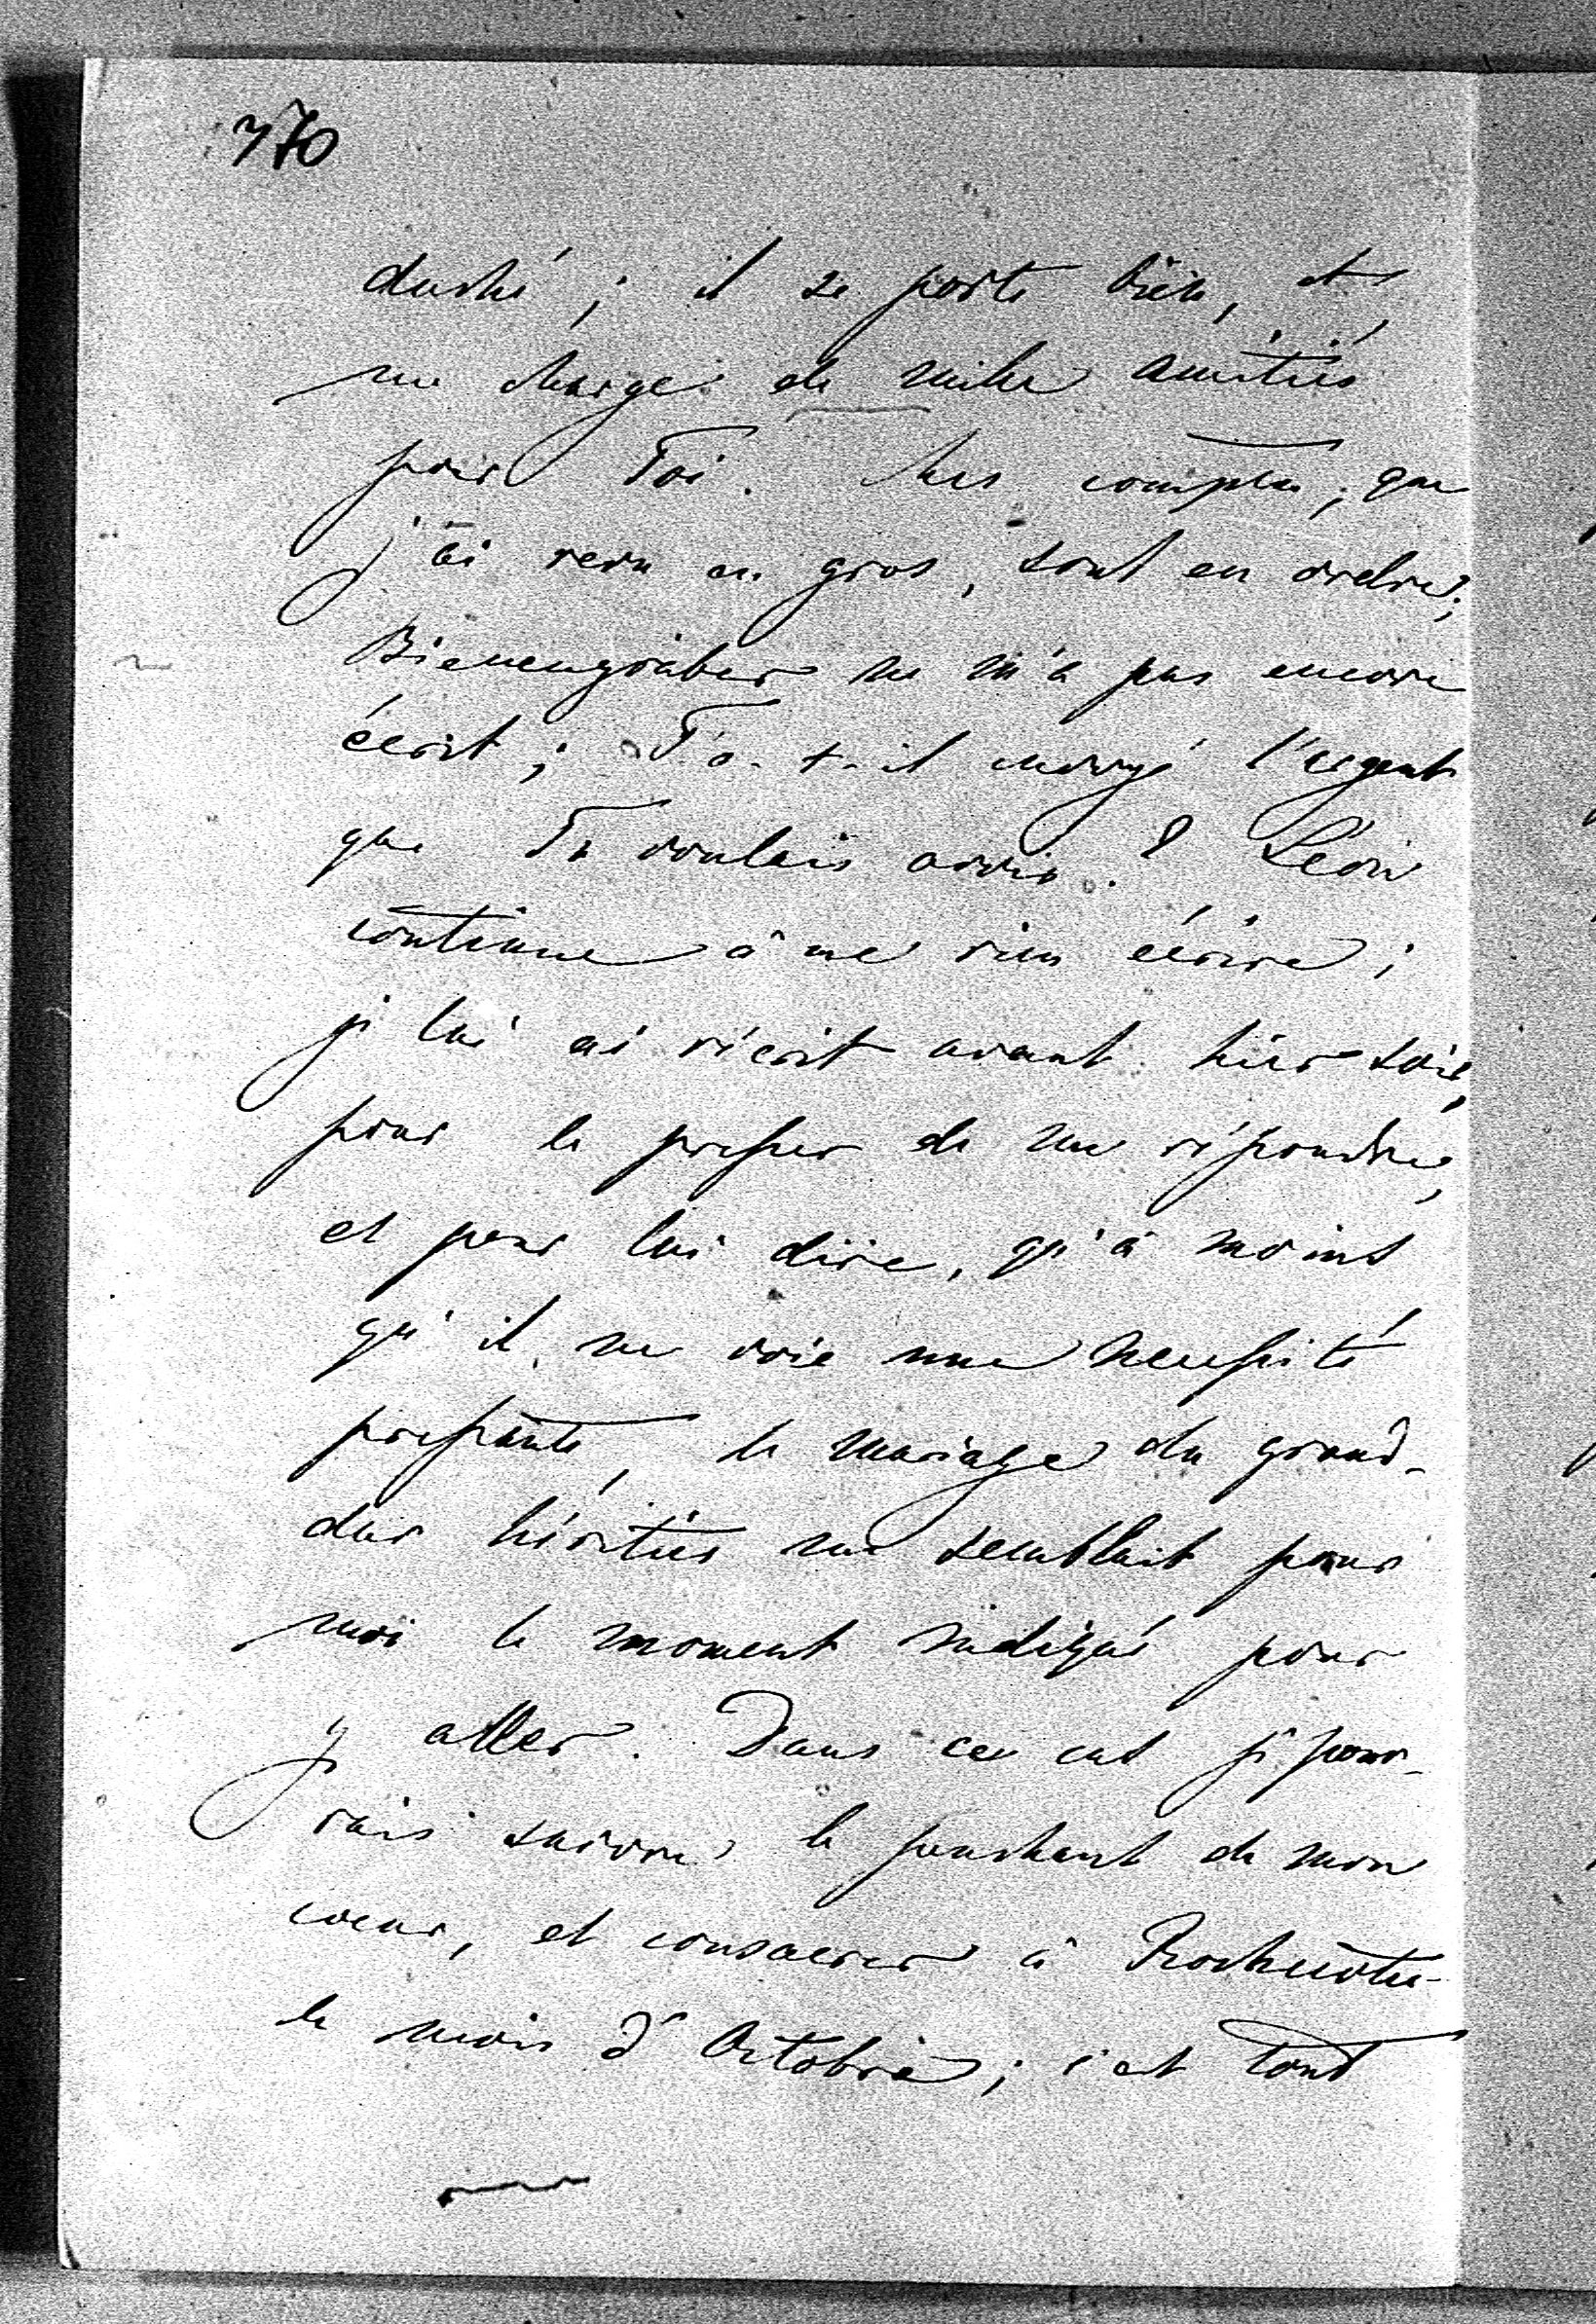 370
duché ; il se porte bien, et
me charge de mille amitiés
pour Toi. Mes comptes, que
j'ai revu en gros, sont en ordre ;
Bienengräber ne m'a pas encore
écrit ; T'a-t-il envoyé l'argent
que Tu voulais avoir ? Léon
continue à ne rien écrire ;
je lui ai récrit avant hier soir,
pour le presser de me répondre,
et pour lui dire, qu'à moins
qu'il ne voie une necessité
pressante, le mariage du grand-
duc héritier me semblait pour
moi le moment indiqué pour
y aller. Dans ce cas je pour-
rais suivre le penchant de mon
coeur, et consacrer à Rochecotte
le mois d'Octobre ; c'est tout